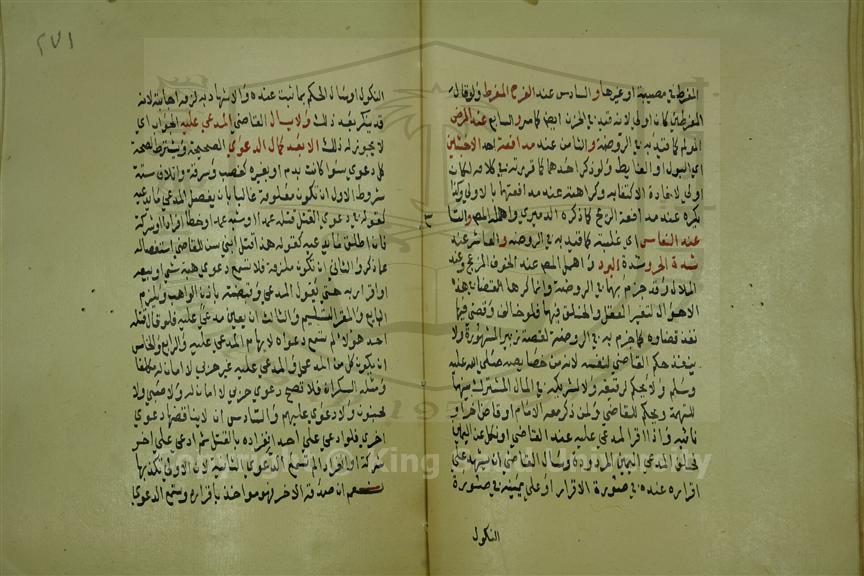 المفرط في مصيبة او غيرها والسادس عند الفرح المفرط ولو قال
المفرطين كان اولى لانه قيد في الحزن ايضا كما مر والسابع عند المرض
المولم كما قيد به في الروضة والثامن عند مدافعة احد الاخبثين
اي البول والغايط ولو ذكر احدهما كما قررته في كلامه لكان
اولى لافادة الاكتفا به وكراهته عند مدافعتهما بالاولى وكذا
يكره عند مدافعة الريح كما ذكره الدميري واهمله المص والتا
عند النعاس اي غلبته كما قيد به في الروضة والعاشر عند
شدة الحر وشدة البرد واهمل المص عند الخوف المزعج وعند
الملال وقد جزم بهما في الروضة وانما كره القضا في هذه
الاحوال لتغير العقل والخلق فيها فلو خالف وقضى فيها
نفذ قضاوه كما جزم به في الروضة لقصة زبير المشهورة ولا
ينفذ حكم القاضي لنفسه لانه من خصايصه صلى الله عليه
وسلم ولا يحكم لرقيقه ولا لشريكه في المال المشترك بينهما
للتهمة ويحكم للقاضي ولمن ذكر معه الامام او قاض اخر او
نائبه واذا اقر المدعى عليه عند القاضي او نكل عن اليمين
فحلف المدعي اليمين المردودة وسال القاضي ان يشهد على
اقراره عنده في صورة الاقرار او على يمينه في صورة
النكول
٢٧١
النكول او سال الحكم بما ثبت عنده والاشهاد به لزمه اجابته لانه
قد ينكر بعد ذلك ولا يسال القاضي المدعى عليه الجواب اي
لا يجوز له ذلك الا بعد كمال الدعوى الصحيحة ويشترط لصحة
كل دعوى سوا كانت بدم او بغيره كغصب وسرقة واتلاف ستة
شروط الاول ان تكون معلومة غالبا بان يفصل المدعي ما يدعيه
كقوله في دعوى القتل قتله عمدا او شبه عمد او خطا افرادا او شركة
فان اطلق ما يدعيه كقوله هذا قتل ابني سن للقاضي استفصاله
عما ذكر والثاني ان تكون ملزمة فلا تسمع دعوى هبة شي او بيعه
او اقرار به حتى يقول المدعي وقبضته باذن الواهب ويلزم
البايع والمقر التسليم والثالث ان يعين مدعى عليه فلو قال قتله
احد هولا لم تسمع دعواه لابهام المدعى عليه والرابع والخامس
ان يكون كل من المدعي والمدعى عليه غير حربي لا امان له مكلفا
ومثله السكران فلا تصح دعوى حربي لا امان له ولا صبي ولا
مجنون ولا دعوى عليهم والسادس ان لا يناقضها دعوى
اخرى فلو ادعى على احد انفراده بالقتل ثم ادعى على اخر
شركة او انفرادا لم تسمع الدعوى الثانية لان الاولى تكذبها
نعم ان صدقه الاخر فهو مواخذ باقراره وتسمع الدعوى
Copyright © King Saud University